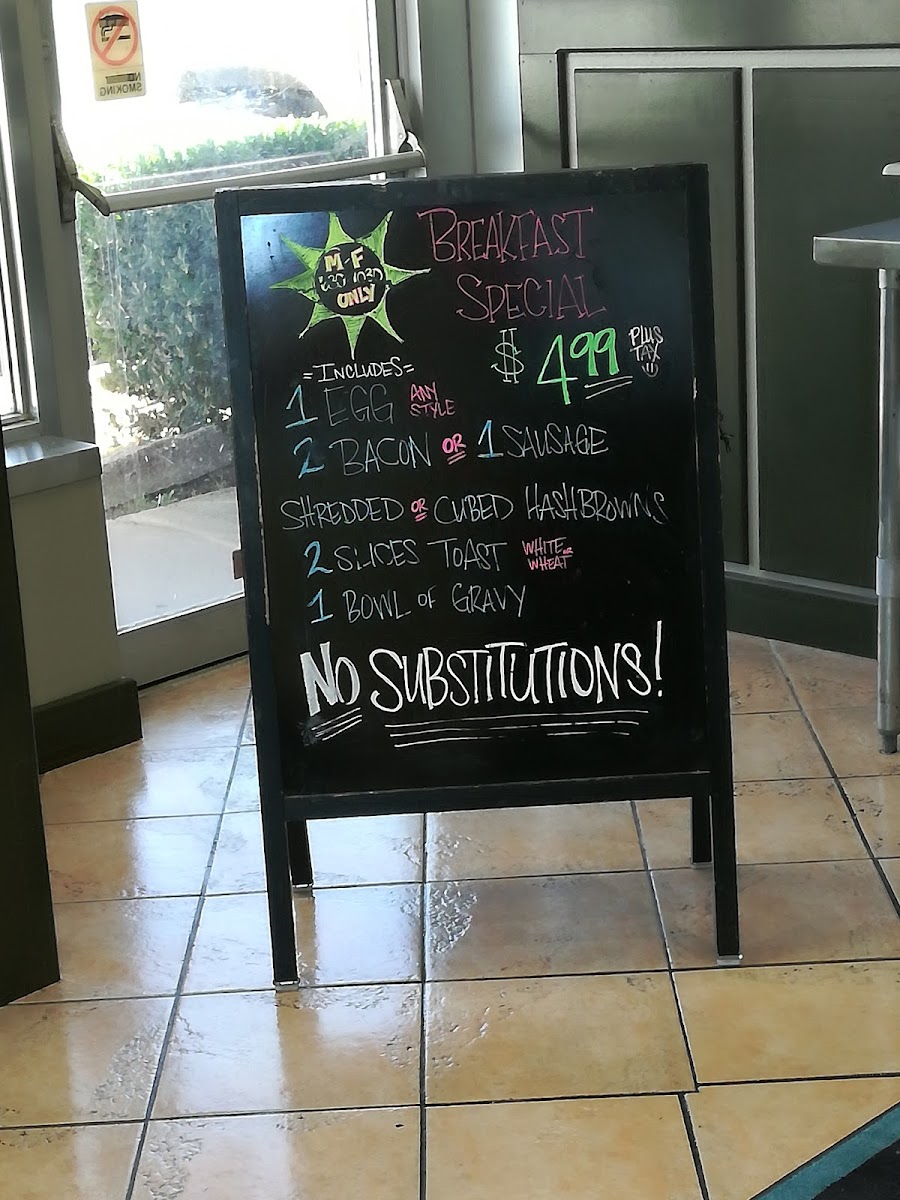 NO
SMOKING
M-F
630-1030
ONLY
BREAKFAST
SPECIAL
$4.99
PLUS
TAX
=INCLUDES=
1 EGG ANY STYLE
2 BACON OR 1 SAUSAGE
SHREDDED OR CUBED HASHBROWNS
2 SLICES TOAST WHITE OR WHEAT
1 BOWL OF GRAVY
NO SUBSTITUTIONS!